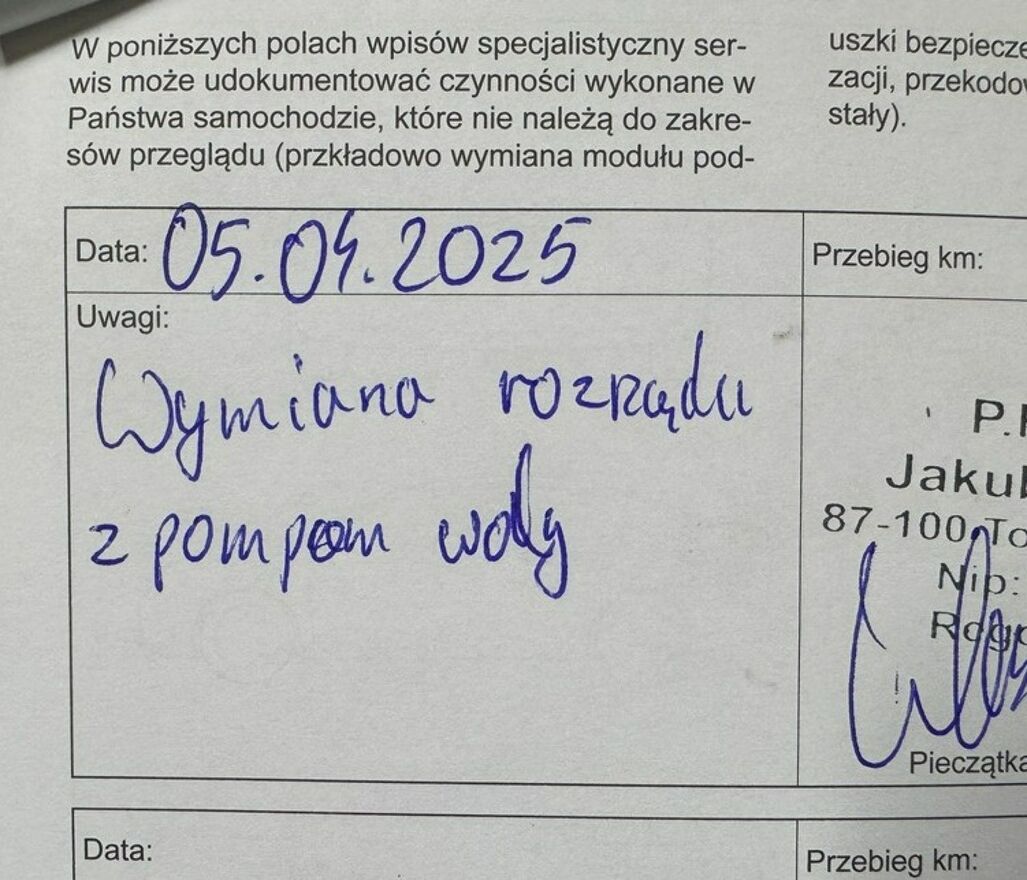 W poniższych polach wpisów specjalistyczny ser-
wis może udokumentować czynności wykonane w
Państwa samochodzie, które nie należą do zakre-
sów przeglądu (przkładowo wymiana modułu pod-
uszki bezpiecze
zacji, przekodow
stały).
Data: 05.04.2025
Przebieg km:
Uwagi:
Wymiana rozrządu
z pompom wody
P.
Jakub
87-100 To
Nip:
Rego
Pieczątka
Data:
Przebieg km: